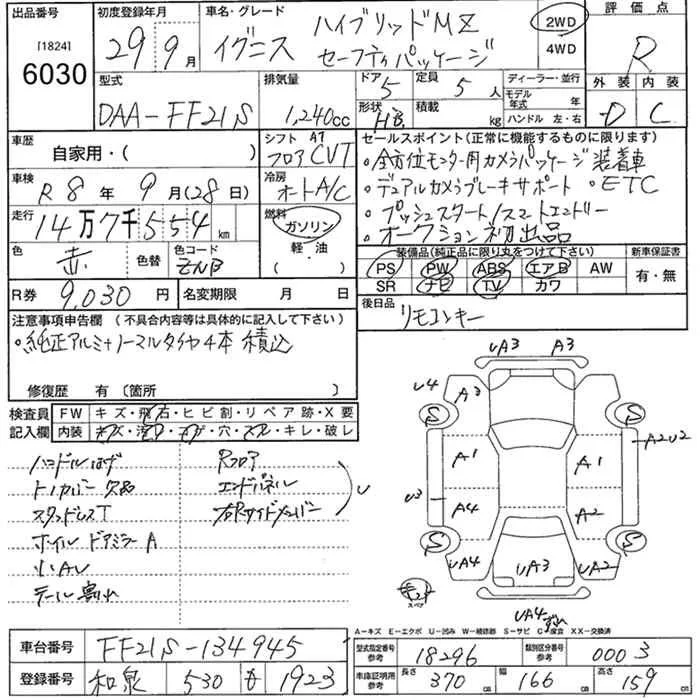 出品番号
[1824]
6030
初度登録年月
29 9月
車名・グレード
イグニス
ハイブリッドMZ
セーフティパッケージ
2WD
4WD
評価点
R
外装 内装
D C
型式
DAA-FF21S
排気量
1,240cc
ドア 5
定員 5人
形状 H.B.
積載 kg
ディーラー・並行
モデル年式 年
ハンドル 左・右
車歴
自家用・( )
シフト AT
フロア CVT
車検
R 8年 9月(28日)
冷房
オートA/C
走行
14万7千554km
燃料
ガソリン
軽・油
色
赤
色替
色コード
ZNB
R券
9,030円
名変期限 月 日
セールスポイント(正常に機能するものに限ります)
・全方位モニター用カメラパッケージ装着車
・デュアルカメラブレーキサポート ・ETC
・プッシュスタート/スマートエントリー
・オークション初出品
装備品(純正品に限り丸をつけて下さい)
PS PW ABS エアB AW
SR ナビ TV カワ
新車保証書
有・無
後日品
リモコンキー
注意事項申告欄(不具合内容等は具体的に記入して下さい)
・純正アルミ+ノーマルタイヤ4本 積込
修復歴 有〔箇所 〕
検査員
記入欄
FW キズ・飛石・ヒビ割・リペア跡・X要
内装 キズ・汚れ・コゲ・穴・スレ・キレ・破レ
ハンドルはげ
トノカバー欠品
スタッドレスT
ホイル ドアミラーA
小AU
テール割れ
Rフロア
エンドパネル
右Rサイドメンバー
U
UA3 A3
U4
A3
S S
A1 A1
A2U2
U3
A4 A2
S S
UA4 UA3 UA2
スペア
UA4 ずれ
A-キズ E-エクボ U-凹み W-補修跡 S-サビ C-腐食 XX-交換済
車台番号
FF21S-134945
登録番号
和泉 530 1923
型式指定番号
参考
18296
類別区分番号
参考
0003
車庫証明用
参考
長さ 370cm
幅 166cm
高さ 159cm